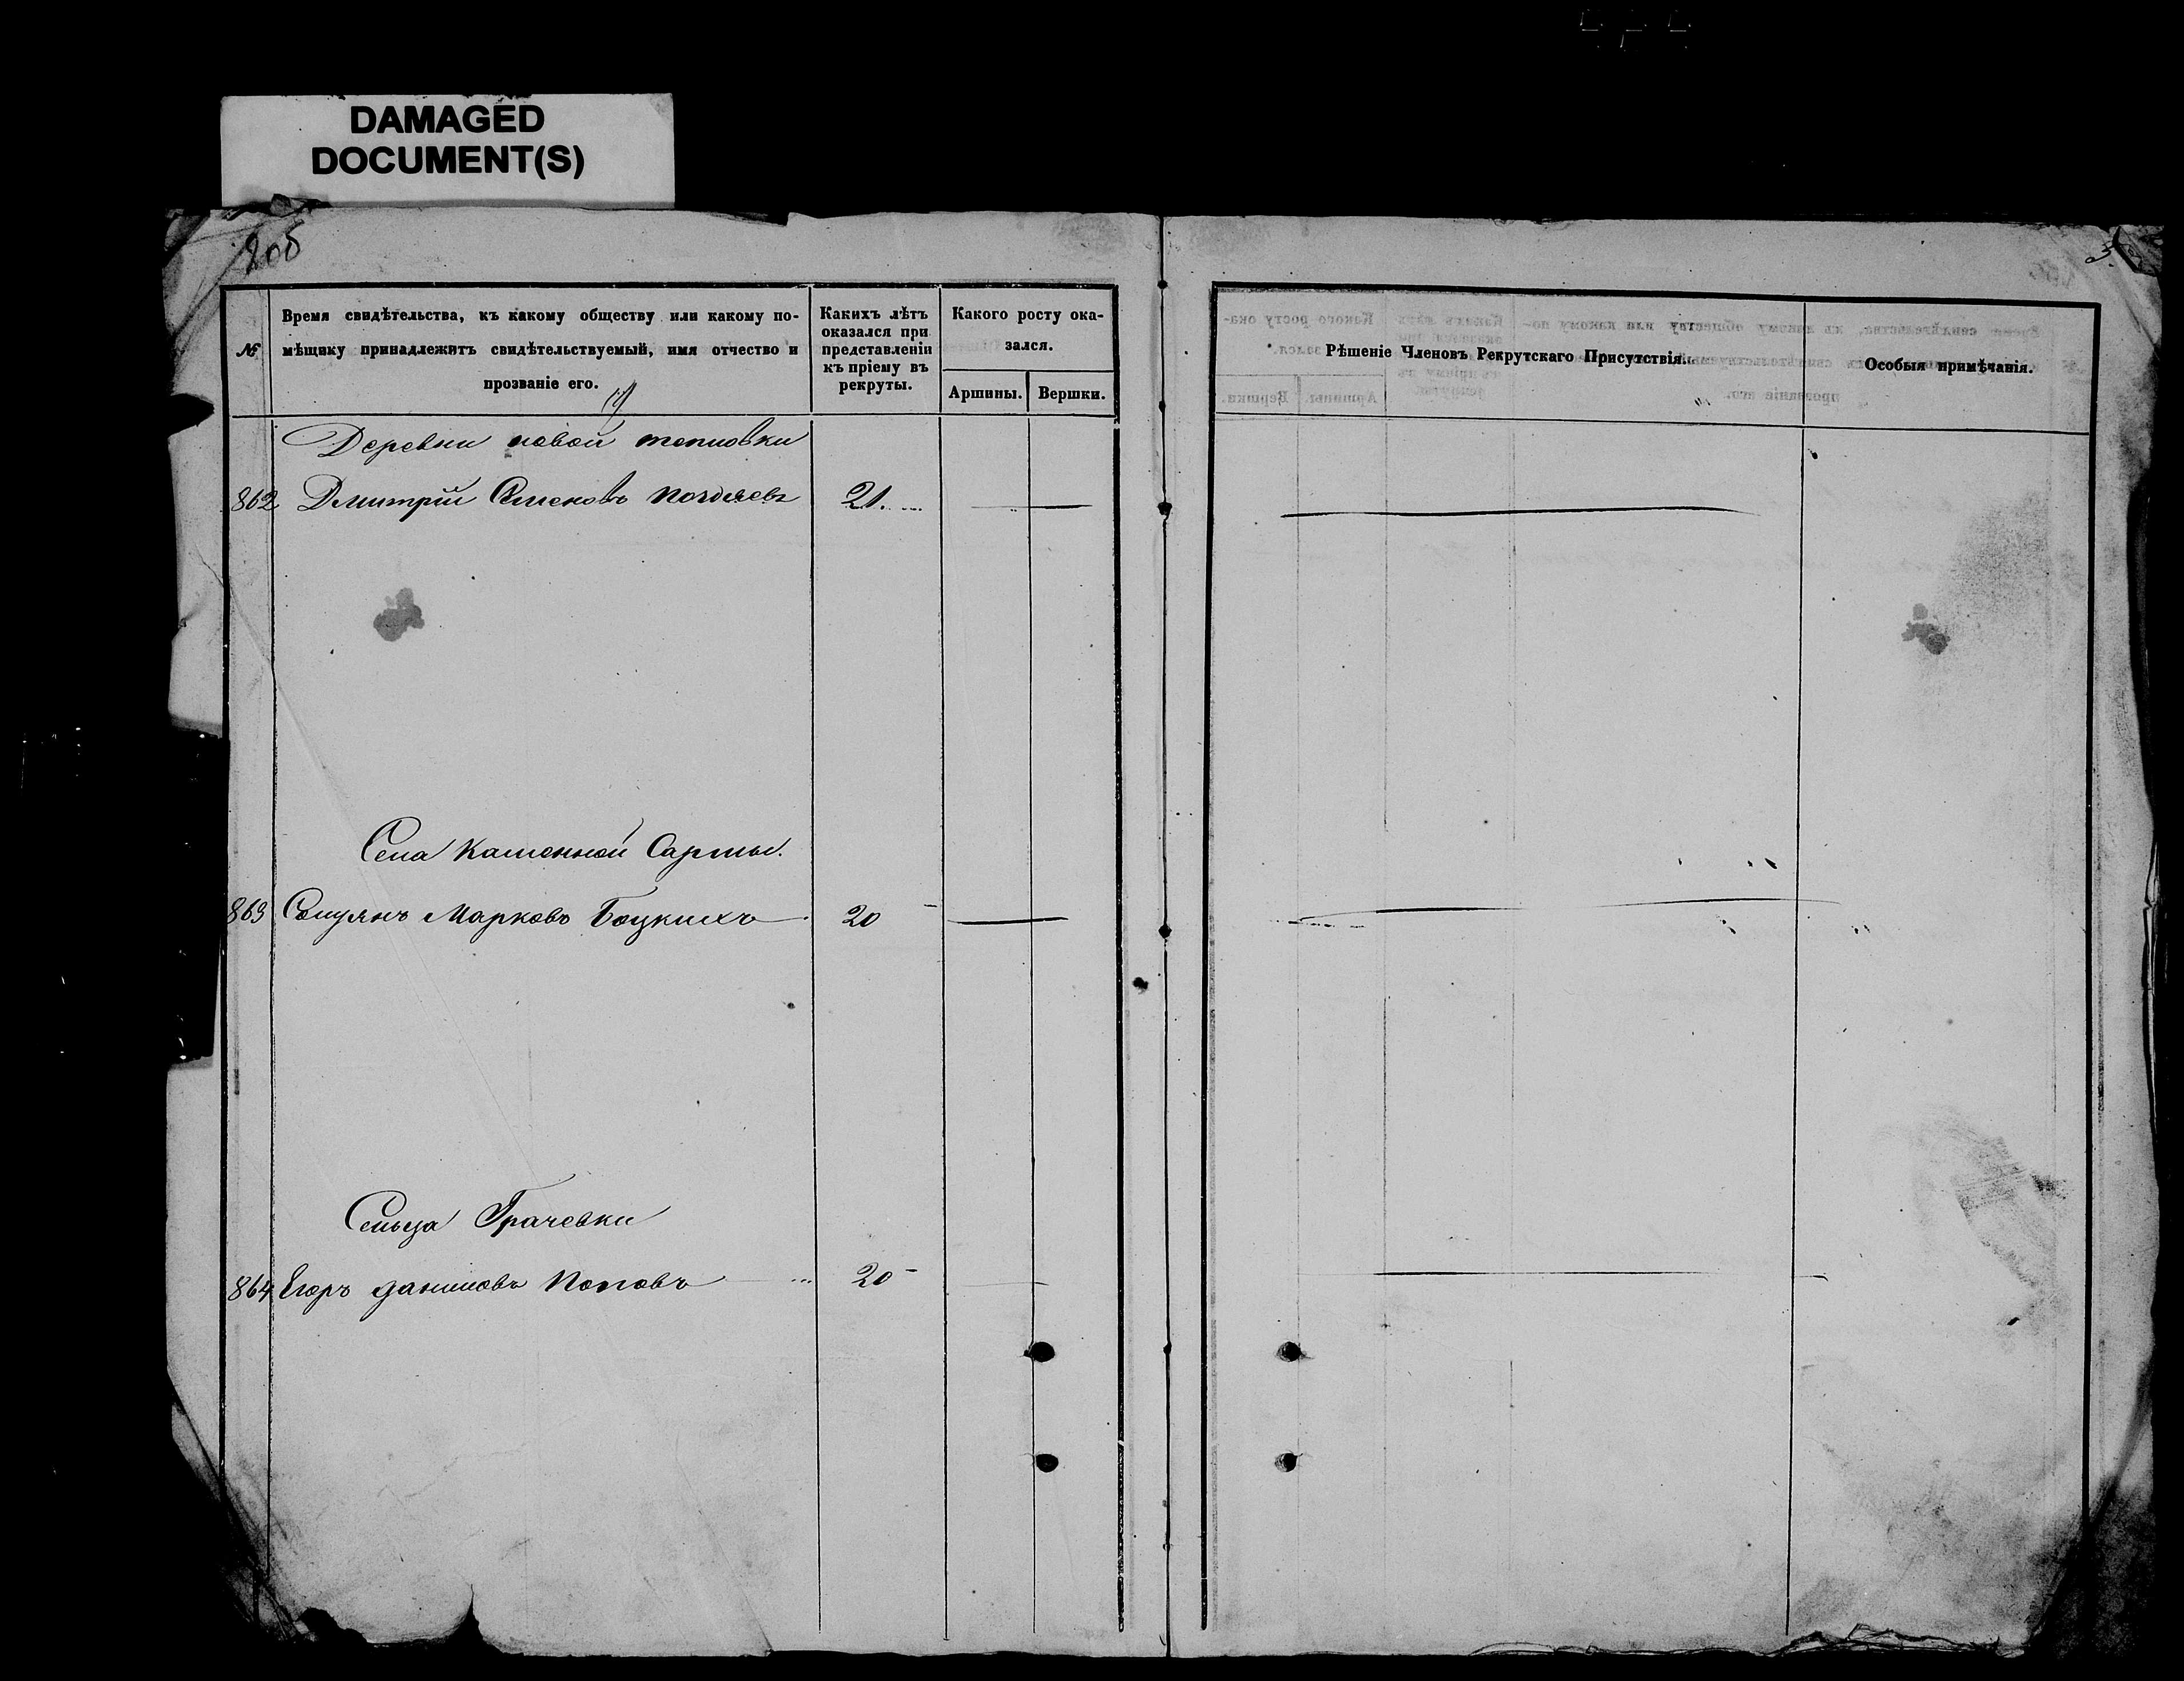 DAMAGED
DOCUMENT(S)
№
Время свидѣтельства, къ какому обществу или какому по-
мѣщику принадлежитъ свидѣтельствуемый, имя отчество и
прозваніе его.
Какихъ лѣтъ
оказался при
представленіи
къ пріему въ
рекруты.
Какого росту ока-
зался.
Аршины. Вершки.
Рѣшеніе Членовъ Рекрутскаго Присутствія.
Особыя примѣчанія.
Деревни новой тепловки
862 Дмитрій Семеновъ 21.
Села Каменной Сармы.
863 Марковъ Боцкихъ 20
Сельца Грачевки
864 Егоръ даниловъ Поповъ 20